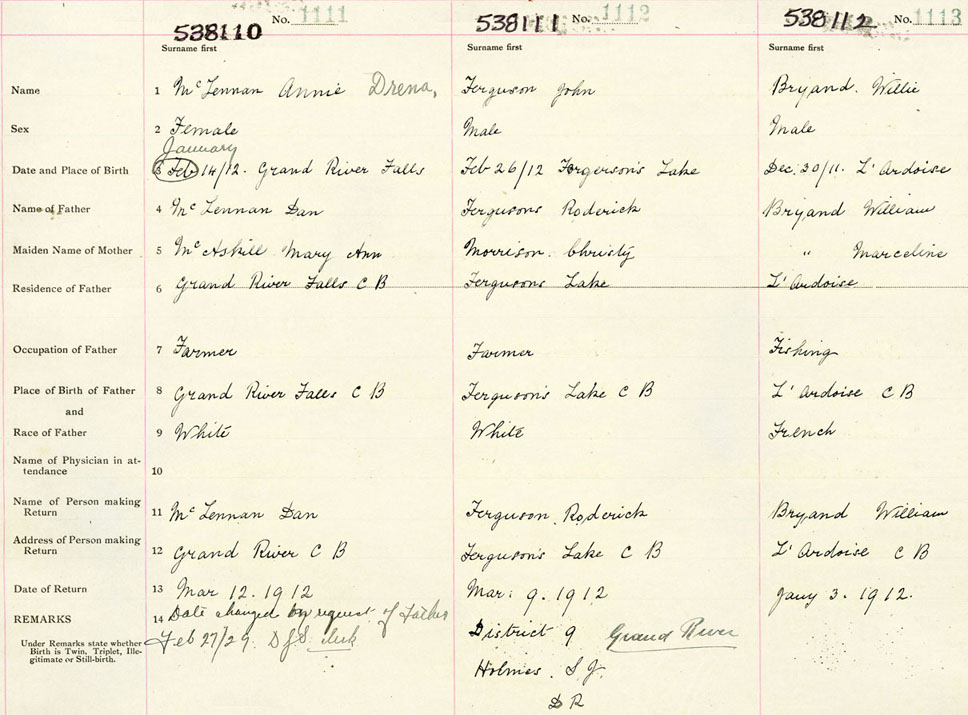 No. 1111 No. 1112 No. 1113
538110 538111 538112
Surname first Surname first Surname first
Name 1 McLennan Annie Drena, Ferguson John Bryand. Willie
Sex 2 Female Male Male
January
Date and Place of Birth 3 Feb 14/12. Grand River Falls Feb 26/12 Forgerson's Lake Dec. 30/11. L'Ardoise
Name of Father 4 McLennan Dan Fergusons Roderick Bryand William
Maiden Name of Mother 5 McAskill Mary Ann Morrison. Christy " Marceline
Residence of Father 6 Grand River Falls C B Ferguson's Lake L'Ardoise
Occupation of Father 7 Farmer Farmer Fishing
Place of Birth of Father 8 Grand River Falls C B Ferguson's Lake C B L'Ardoise C B
and
Race of Father 9 White White French
Name of Physician in at-
tendance 10
Name of Person making
Return 11 McLennan Dan Ferguson. Roderick Bryand William
Address of Person making
Return 12 Grand River C B Ferguson's Lake C B L'Ardoise C B
Date of Return 13 Mar 12. 1912 Mar: 9. 1912 Jany 3. 1912.
REMARKS 14 Date changed by request of Father
Under Remarks state whether
Birth is Twin, Triplet, Ille-
gitimate or Still-birth.
Feb 27/29.
District 9 Grand River
Holmes. S J.
D R